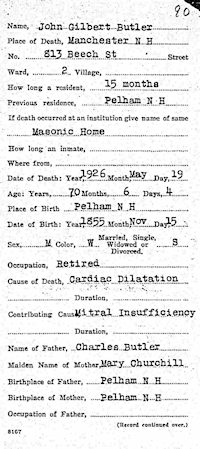 90
Name, John Gilbert Butler
Place of Death, Manchester N H
No. 813 Beech St Street
Ward, 2 Village,
How long a resident, 15 months
Previous residence, Pelham N H
If death occurred at an institution give name of same
Masonic Home
How long an inmate,
Where from,
Date of Death: Year, 1926 Month, May Day, 19
Age: Years, 70 Months, 6 Days, 4
Place of Birth Pelham N H
Date of Birth: Year, 1855 Month, Nov Day, 15
Sex, M Color, W Married, Single, Widowed or Divorced, S
Occupation, Retired
Cause of Death, Cardiac Dilatation
Duration,
Contributing Cause Mitral Insufficiency
Duration,
Name of Father, Charles Butler
Maiden Name of Mother, Mary Churchill
Birthplace of Father, Pelham N H
Birthplace of Mother, Pelham N H
Occupation of Father,
(Record continued over.)
8167